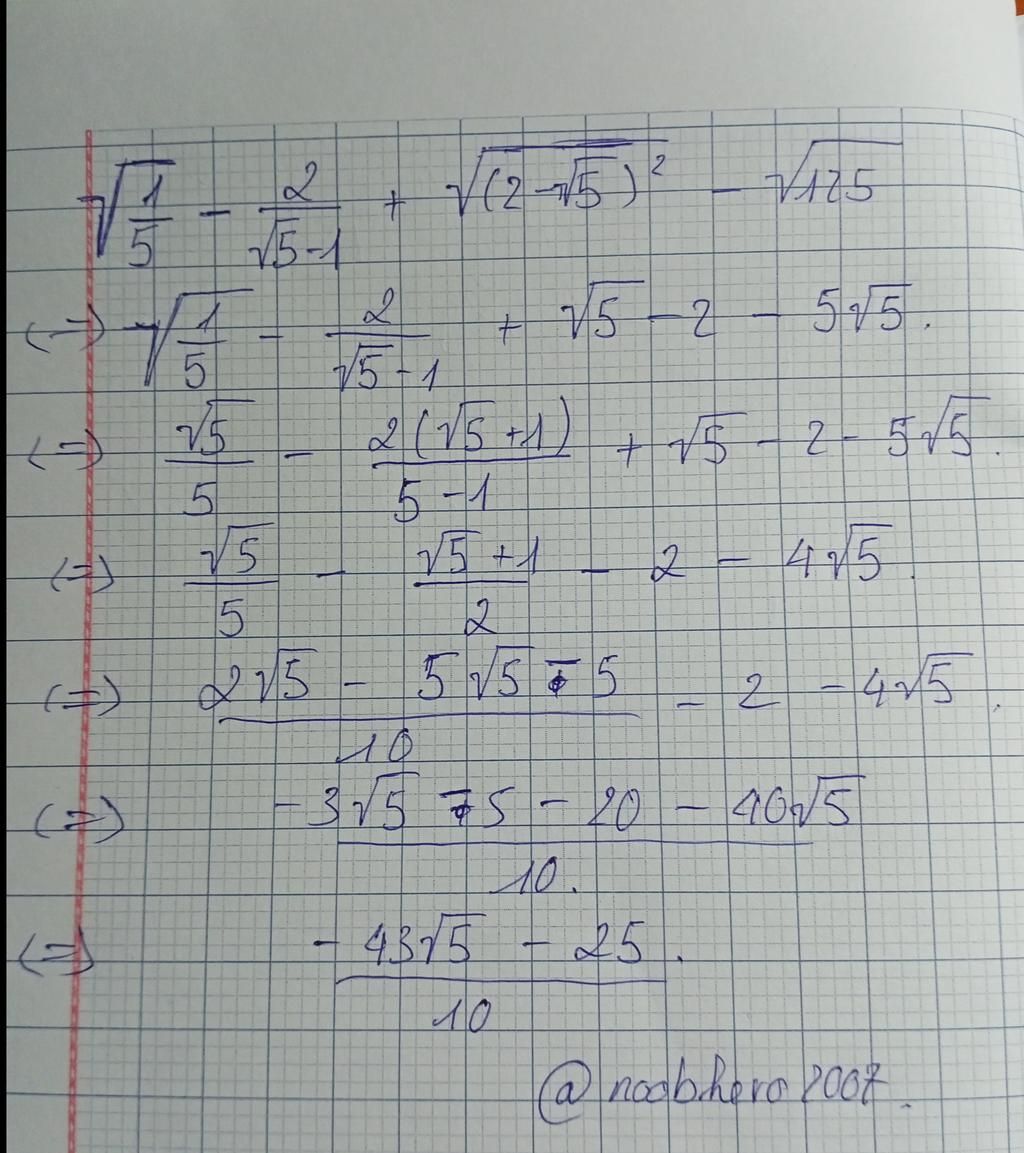 √(1/5) - 2/(√5-1) + √((2-√5)²) - √125
(=) √(1/5) - 2/(√5-1) + √5 - 2 - 5√5.
(=) √5/5 - 2(√5+1)/(5-1) + √5 - 2 - 5√5.
(=) √5/5 - (√5+1)/2 - 2 - 4√5.
(=) (2√5 - 5√5 - 5)/10 - 2 - 4√5.
(=) (-3√5 - 5 - 20 - 40√5)/10.
(=) (-43√5 - 25)/10.
@noobhero2007.